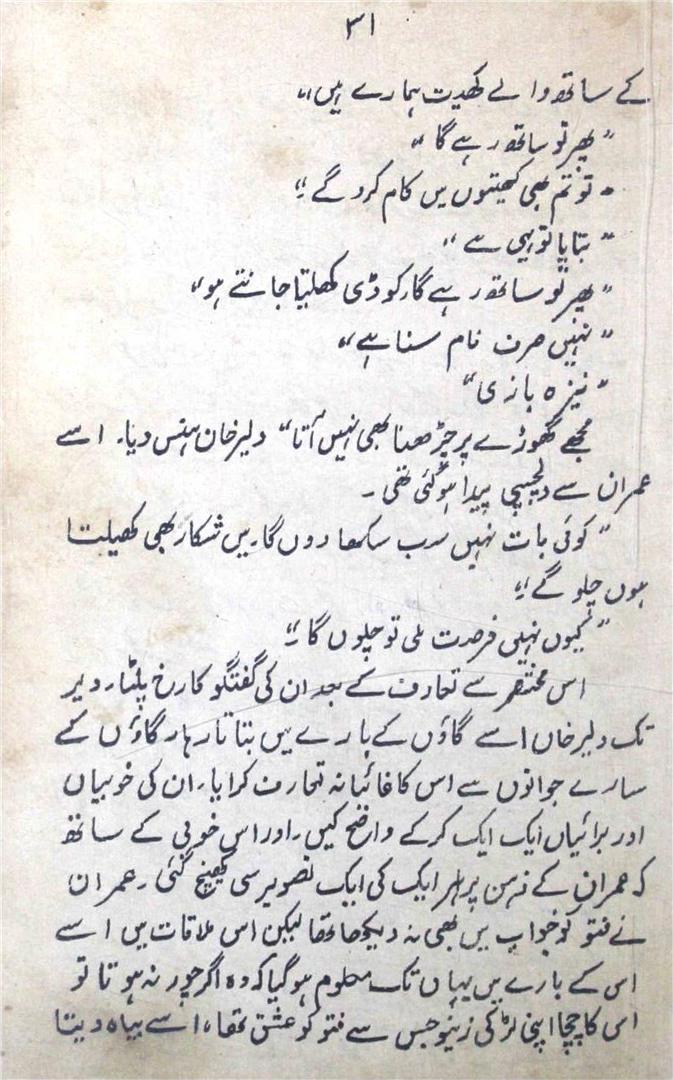 ۳۱
کے ساتھ والے کھیت ہمارے ہیں"
" پھر تو ساتھ رہے گا "
" تو تم بھی کھیتوں میں کام کرو گے "
" بتایا تو ہی ہے "
" پھر تو ساتھ رہے گا۔ کوڈی کھیلنا جانتے ہو "
" نہیں صرف نام سنا ہے "
" نیزہ بازی "
مجھے گھوڑے پر چڑھنا بھی نہیں آتا " دلیر خان ہنس دیا۔ اسے
عمران سے دلچسپی پیدا ہو گئی تھی۔
" کوئی بات نہیں سب سکھا دوں گا۔ میں شکار بھی کھیلتا
ہوں چلو گے "
" کیوں نہیں فرصت ملی تو چلوں گا "
اس مختصر سے تعارف کے بعد ان کی گفتگو کا رخ پلٹا۔ دیر
تک دلیر خاں اسے گاؤں کے بارے میں بتاتا رہا۔ گاؤں کے
سارے جوانوں سے اس کا غائبانہ تعارف کرایا۔ ان کی خوبیاں
اور برائیاں ایک ایک کر کے واضح کیں۔ اور اس خوبی کے ساتھ
کہ عمران کے ذہن پر ہر ایک کی ایک تصویر سی کھینچ گئی۔ عمران
نے فتو کو خواب میں بھی نہ دیکھا تھا لیکن اس ملاقات میں اسے
اس کے بارے میں یہاں تک معلوم ہو گیا کہ وہ اگر چور نہ ہوتا تو
اس کا چچا اپنی لڑکی زینو جس سے فتو کو عشق تھا، اسے بیاہ دیتا